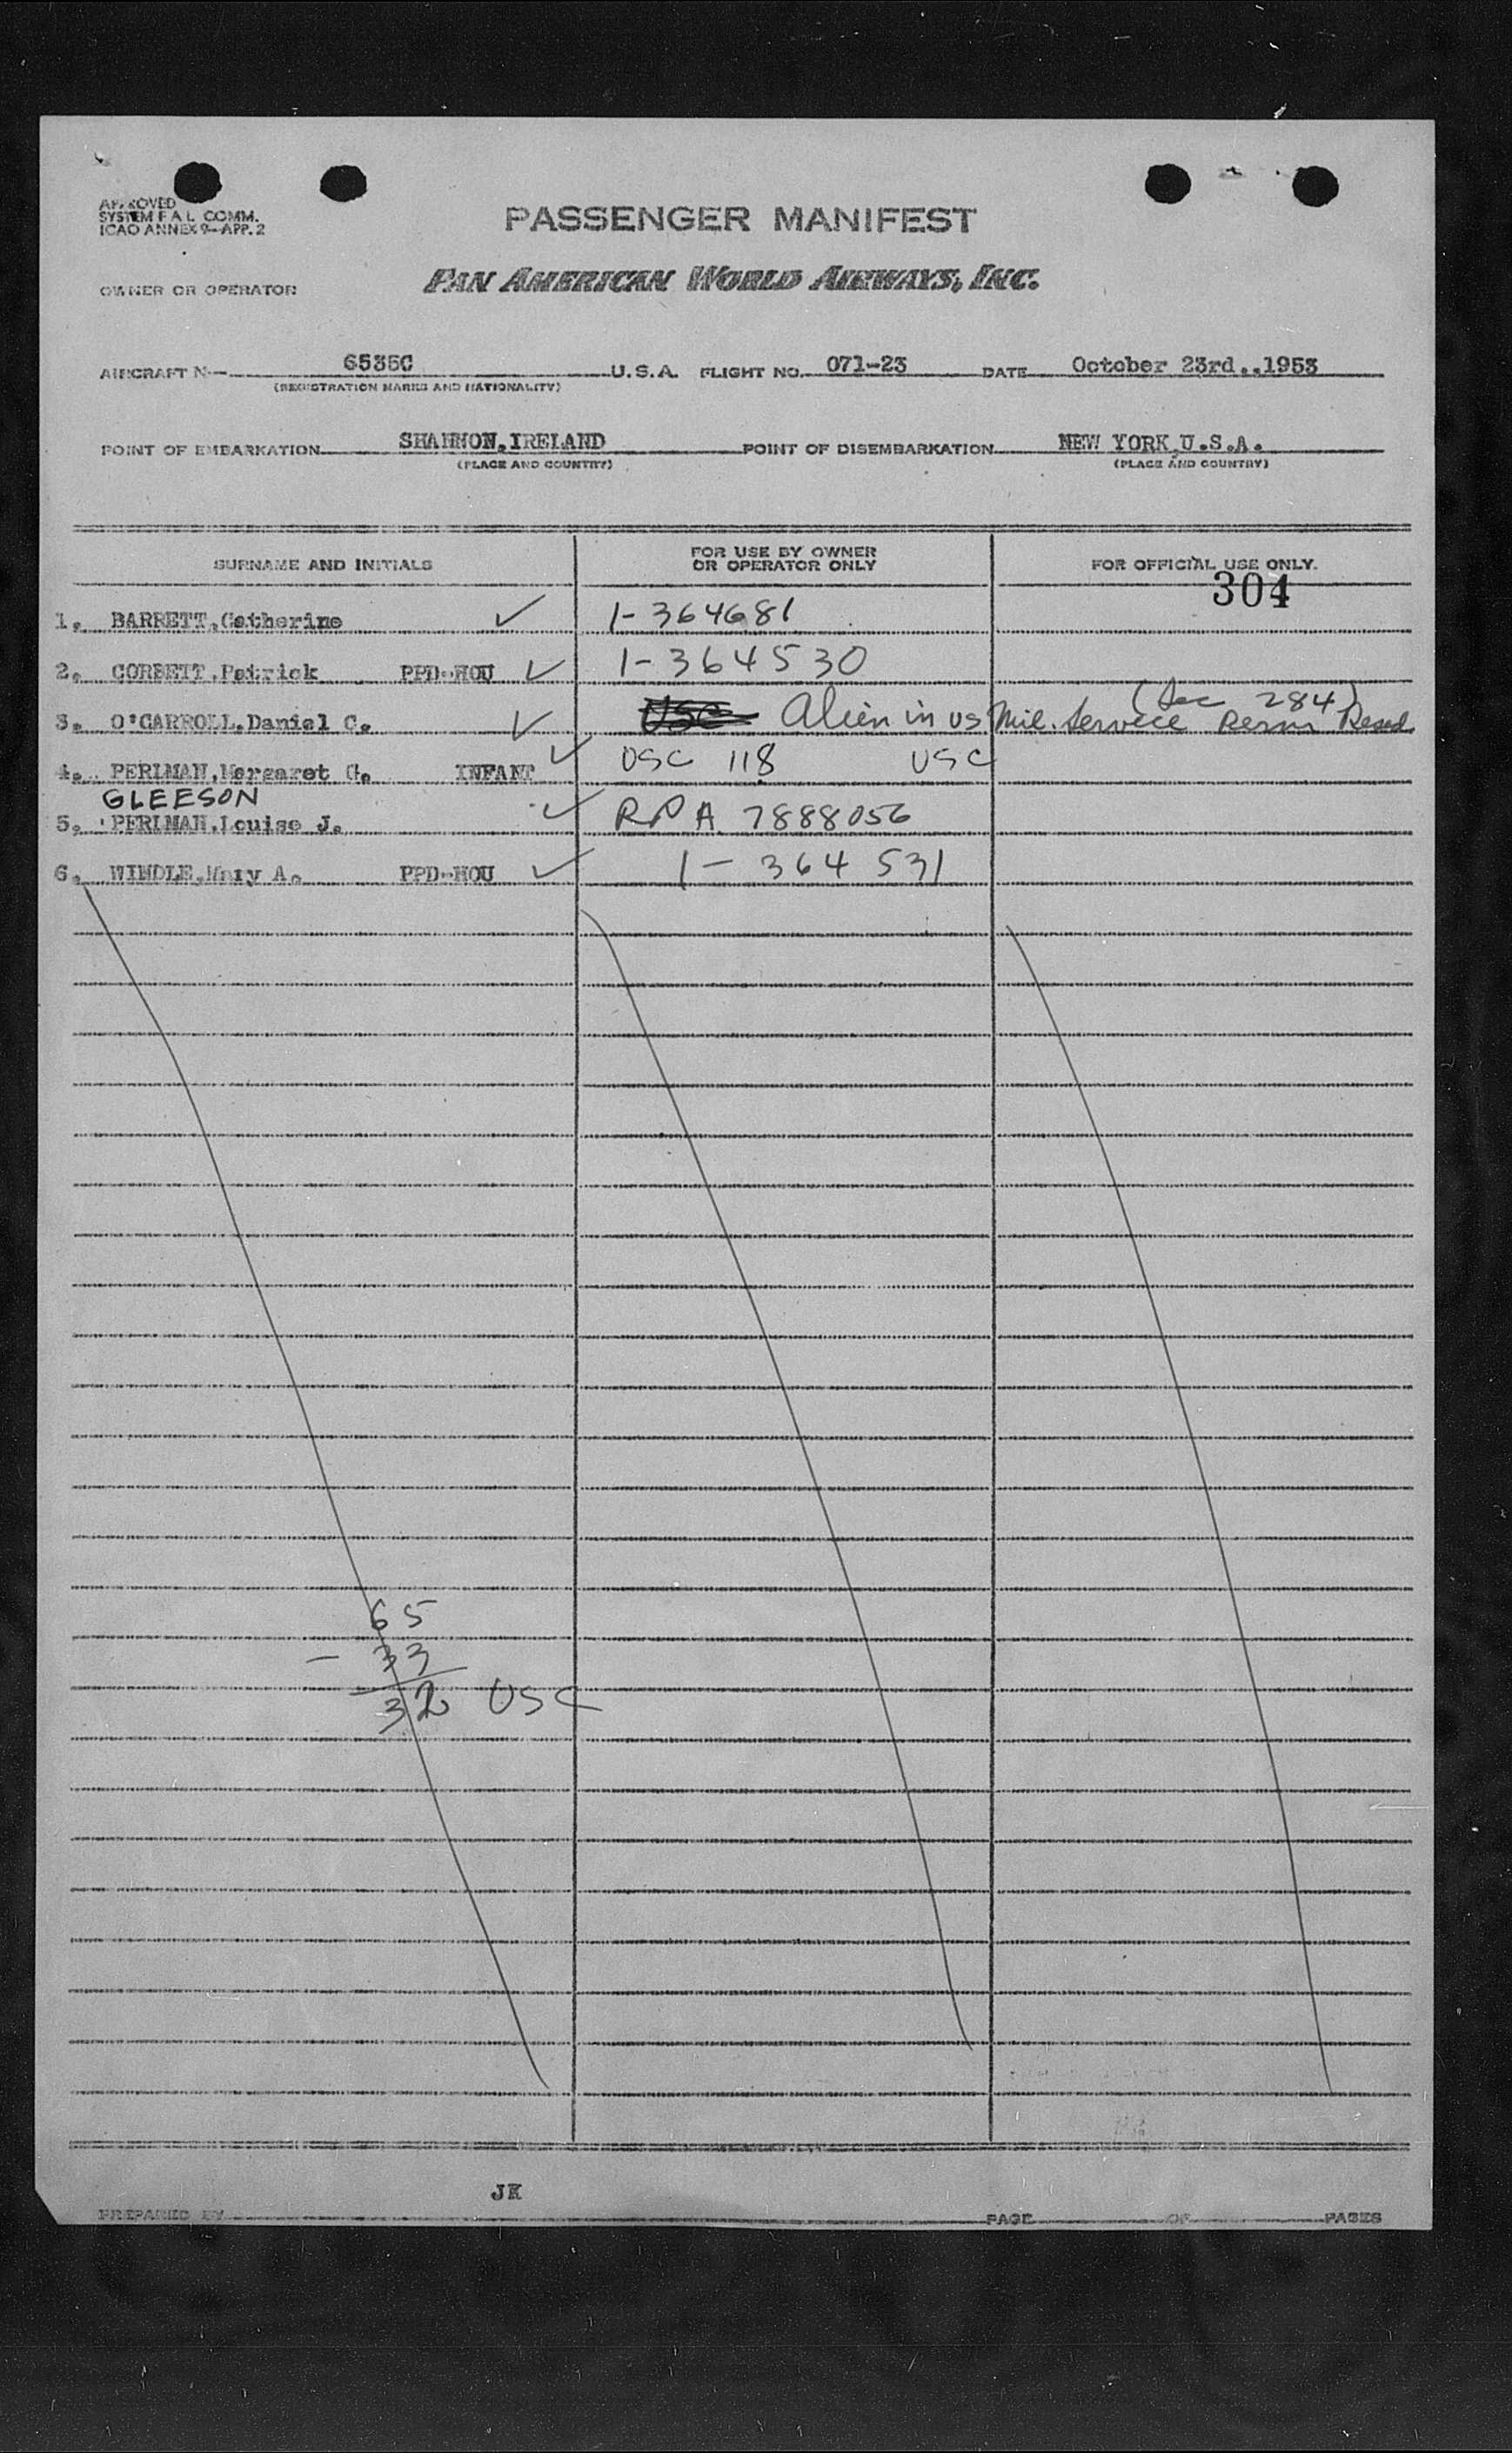 APPROVED
SYSTEM F A L COMM.
ICAO ANNEX 9—APP. 2
PASSENGER MANIFEST
OWNER OR OPERATOR PAN AMERICAN WORLD AIRWAYS, INC.
AIRCRAFT N— 6535C U.S.A. FLIGHT NO. 071-23 DATE October 23rd.,1953
(REGISTRATION MARKS AND NATIONALITY)
POINT OF EMBARKATION SHANNON,IRELAND POINT OF DISEMBARKATION NEW YORK,U.S.A.
(PLACE AND COUNTRY) (PLACE AND COUNTRY)
SURNAME AND INITIALS FOR USE BY OWNER OR OPERATOR ONLY FOR OFFICIAL USE ONLY.
304
1. BARRETT,Catherine ✓ 1-364681
2. CORBETT,Patrick PPD-HOU ✓ 1-364530
(Sec 284)
3. O'CARROLL,Daniel C. ✓ USC Alien in US Mil. Service Perm Resd
4. PERLMAN,Margaret G. INFANT ✓ USC 118 USC
GLEESON
5. PERLMAN,Louise J. ✓ RP A 7888056
6. WINDLE,Mary A. PPD-HOU ✓ 1-364531
65
- 33
32 USC
JK
PREPARED BY PAGE OF PAGES